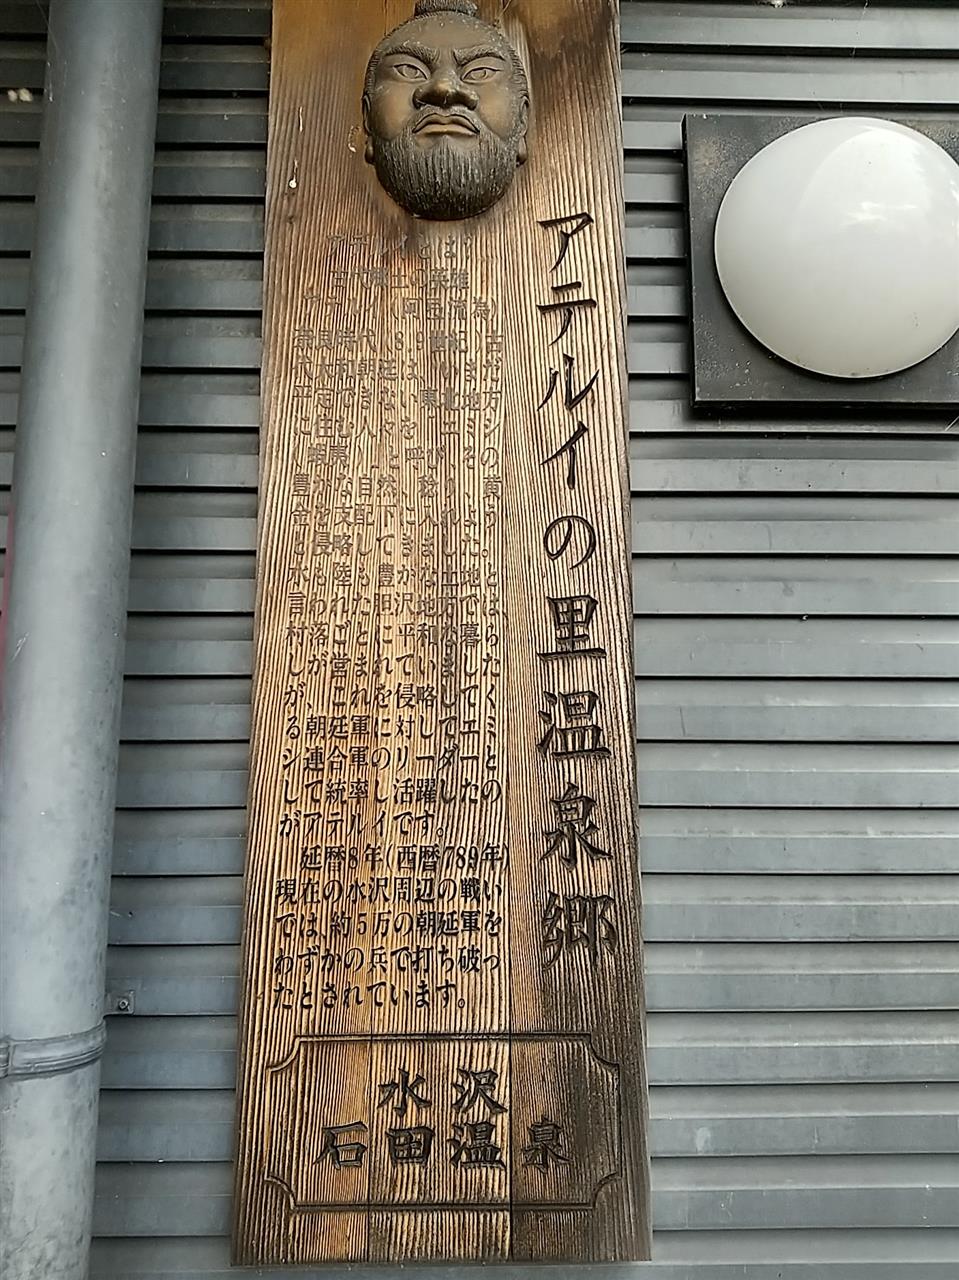 アテルイの里温泉郷
アテルイとは?…
アテルイ(阿弖流為)
代大和朝廷は、いまだ
平定できない東北地方
に住む人々を「エミシ
豊かな自然、稔り、
と侵略してきました。
水も陸も豊かな土地と
言われた胆沢地方では
村落ごとに平和な暮ら
しが営まれていました
が、これを侵略してく
る朝廷軍に対し、エミ
シ連合軍のリーダーと
して統率し活躍したの
がアテルイです。
延暦8年(西暦789年)
現在の水沢周辺の戦い
では、約5万の朝廷軍を
わずかの兵で打ち破っ
たとされています。
水沢
石田温泉